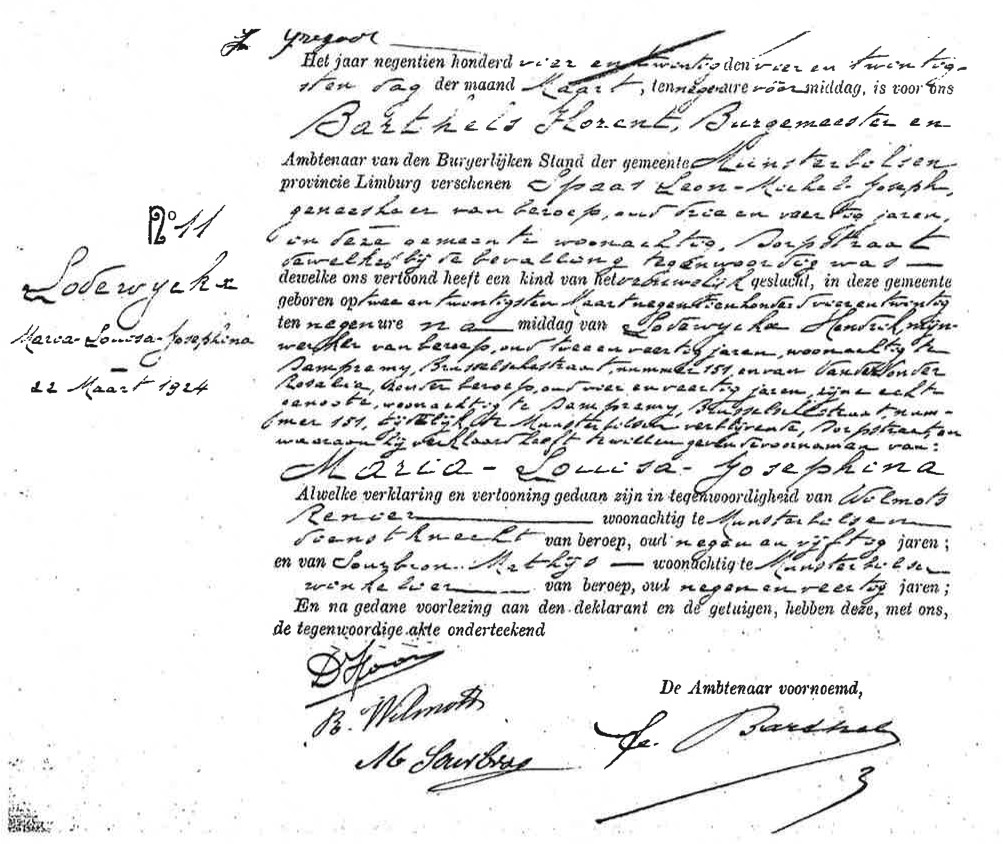 Het jaar negentien honderd vier en twintig den vier en twintig-
sten dag der maand Maart, ten negen ure vóór middag, is voor ons
Barthels Florent, Burgemeester en
Ambtenaar van den Burgerlijken Stand der gemeente Munsterbilsen
provincie Limburg verschenen Spaas Leon-Michel-Joseph,
geneesheer van beroep, oud drie en veertig jaren,
in deze gemeente woonachtig, Dorpstraat
dewelke bij de bevalling tegenwoordig was —
dewelke ons vertoond heeft een kind van het vrouwelijk geslacht, in deze gemeente
geboren op twee en twintigsten Maart negentienhonderd vier en twintig
ten negen ure na middag van Lodewyckx Hendrik, mijn-
werker van beroep, oud twee en veertig jaren, woonachtig te
Dampremy, Brusselschestraat, nummer 151, en van
Rosalia, zonder beroep, oud vier en veertig jaren, zijne echte
genoote, woonachtig te Dampremy, num-
mer 151, tijdelijk te Munsterbilsen verblijvende, Dorpstraat, en
waaraan hij verklaard heeft te willen geven de voornamen van:
Maria-Louisa-Josephina
Alwelke verklaring en vertooning gedaan zijn in tegenwoordigheid van Wilmots
Renier — woonachtig te Munsterbilsen
dienstknecht van beroep, oud negen en vijftig jaren;
en van Mathijs — woonachtig te Munsterbilsen
winkelier — van beroep, oud negen en veertig jaren;
En na gedane voorlezing aan den deklarant en de getuigen, hebben deze, met ons,
de tegenwoordige akte onderteekend
N° 11
Lodewyckx
Maria-Louisa-Josephina
—
22 Maart 1924
R. Wilmots
De Ambtenaar voornoemd,
Barthels